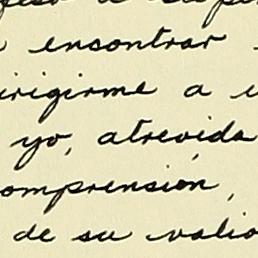 a
encontrar
dirigirme a
yo, atrevida
comprensión,
de su valio